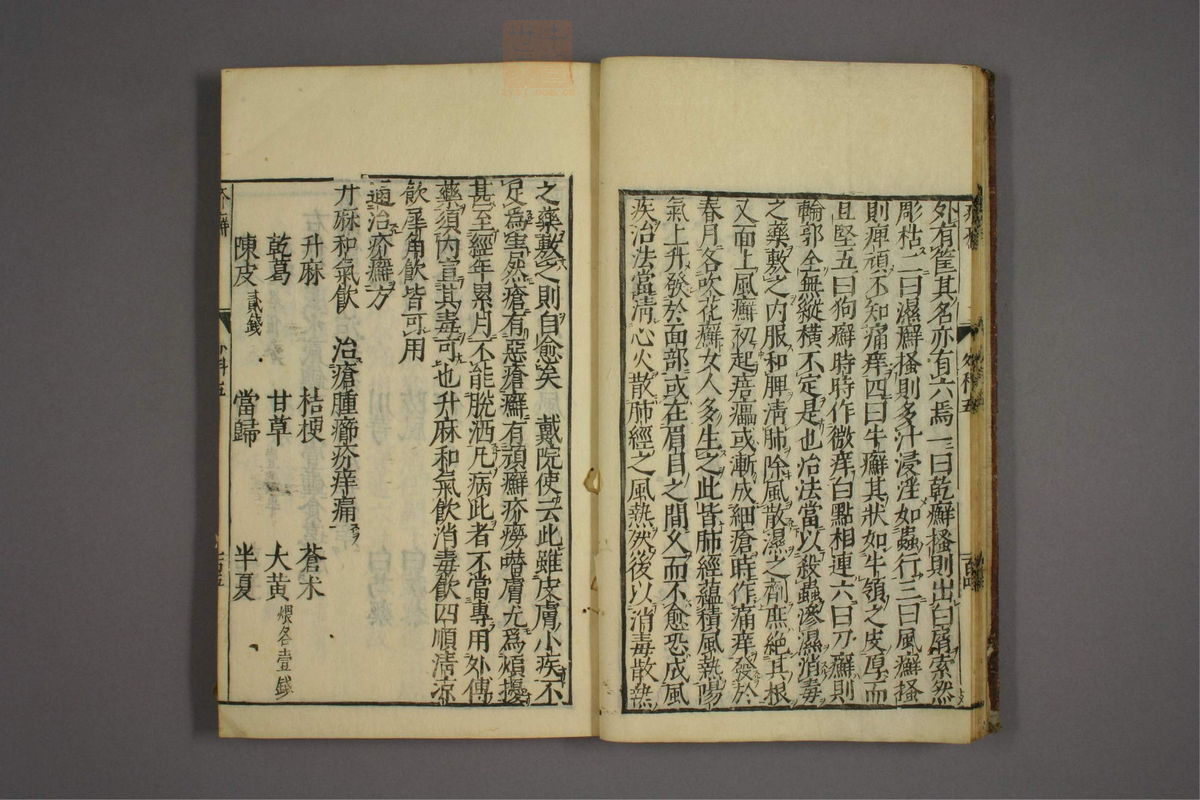 外有筐其名亦有六焉一曰乾癬搔則出白屑索然
彫枯二曰濕癬搔則多汁浸淫如蟲行三曰風癬搔
則痺頑不知痛痒四曰牛癬其狀如牛領之皮厚而
且堅五曰狗癬時時作微痒白點相連六曰刀癬則
輪郭全無縱橫不定是也治法當以殺蟲滲濕消毒
之藥敷之内服和脾清肺除風散濕之劑庶絶其根
又面上風癬初起㾦㿔或漸成細瘡時作痛痒發於
春月各吹花癬女人多生之此皆肺經蘊積風熱陽
氣上升發於面部或在眉目之間久而不愈恐成風
疾治法當清心火散肺經之風熱然後以消毒散熱
之藥敷之則自愈矣　戴院使云此雖皮膚小疾不
足為害然瘡有惡瘡癬有頑癬疥癆噆膚尤爲煩擾
甚至經年累月不能脫洒凡病此者不當專用外傅
藥須内宣其毒可也升麻和氣飲消毒飲四順清涼
飲犀角飲皆可用
通治疥癬方
升麻和氣飲　治瘡腫癤疥痒痛
升麻　桔梗　蒼朮
乾葛　甘草　大黄煨各壹錢
陳皮貳錢　當歸　半夏